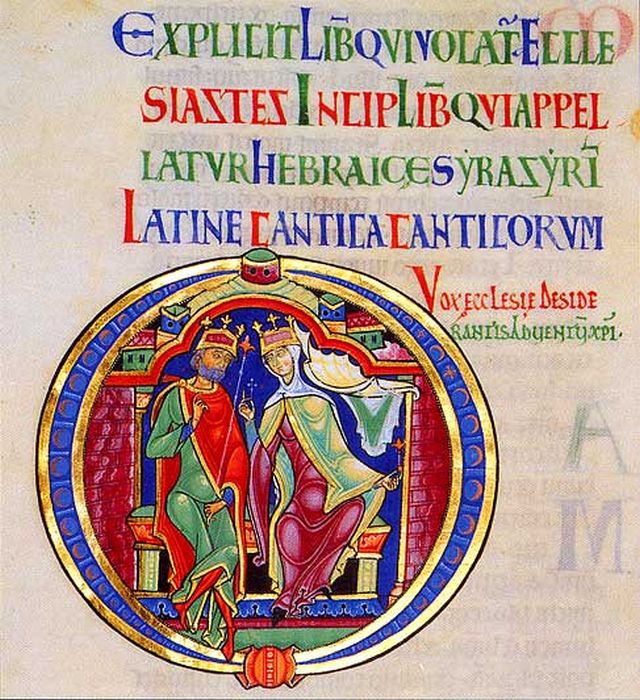 EXPLICIT LIB̄ QVI VOCAT̄ ECCLE
SIASTES INCIP LIB̄ QVI APPEL
LATVR HEBRAICE SẎRASẎRĪ
LATINE CANTICA CANTICORVM
VOX ECCLESIE DESIDE
RANTIS ADVENTV̄ XPI.